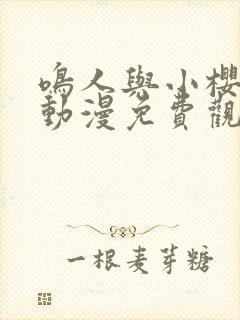 鳴人與小櫻
動漫免費觀
一根麦芽糖